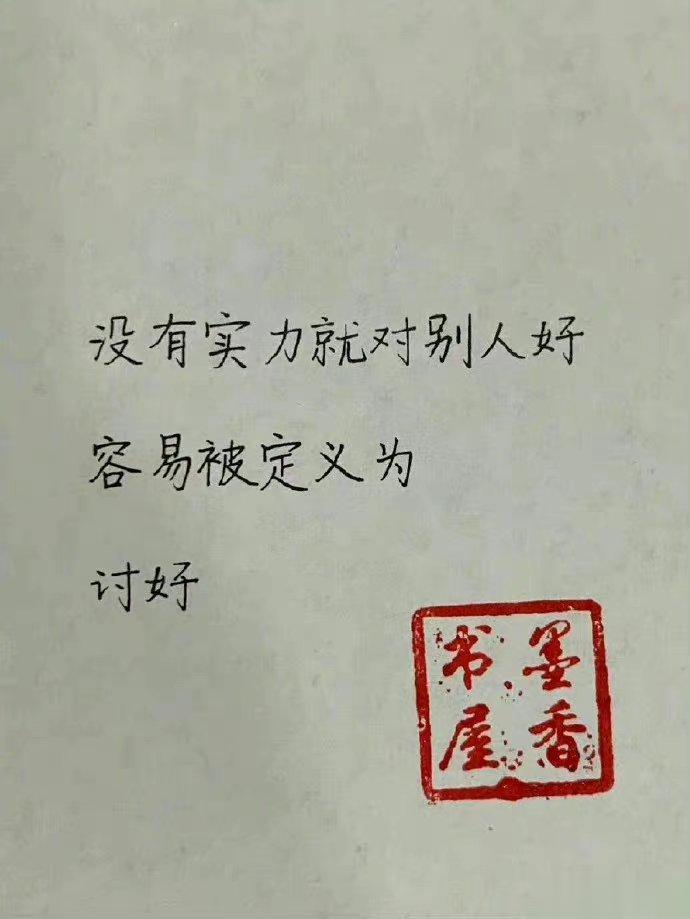 没有实力就对别人好
容易被定义为
讨好
墨香
书屋